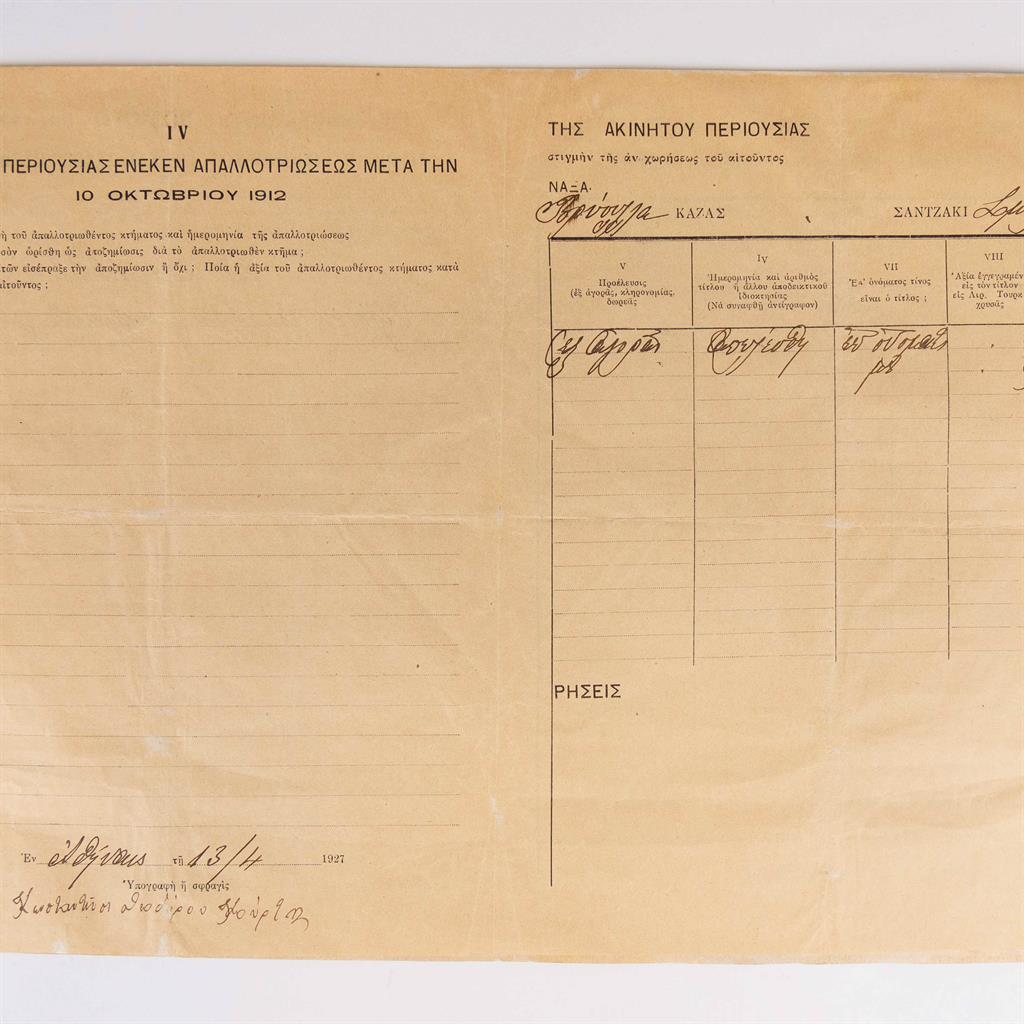 IV
ΠΕΡΙΟΥΣΙΑΣ ΕΝΕΚΕΝ ΑΠΑΛΛΟΤΡΙΩΣΕΩΣ ΜΕΤΑ ΤΗΝ
10 ΟΚΤΩΒΡΙΟΥ 1912
τοῦ ἀπαλλοτριωθέντος κτήματος καὶ ἡμερομηνία τῆς ἀπαλλοτριώσεως
σὸν ὡρίσθη ὡς ἀποζημίωσις διὰ τὸ ἀπαλλοτριωθὲν κτῆμα ;
τῶν εἰσέπραξε τὴν ἀποζημίωσιν ἢ ὄχι ; Ποία ἡ ἀξία τοῦ ἀπαλλοτριωθέντος κτήματος κατὰ
αἰτοῦντος ;
Ἐν Ἀθήναις τῇ 13/4 1927
Ὑπογραφὴ ἢ σφραγὶς
ΤΗΣ ΑΚΙΝΗΤΟΥ ΠΕΡΙΟΥΣΙΑΣ
στιγμὴν τῆς ἀναχωρήσεως τοῦ αἰτοῦντος
ΝΑΞΑ.
ΚΑΖΑΣ ΣΑΝΤΖΑΚΙ
V
Προέλευσις
(ἐξ ἀγορᾶς, κληρονομίας,
δωρεᾶς
IV
Ἡμερομηνία καὶ ἀριθμὸς
τίτλου ἢ ἄλλου ἀποδεικτικοῦ
ἰδιοκτησίας
(Νὰ συναφθῇ ἀντίγραφον)
VII
Ἐπ' ὀνόματος τίνος
εἶναι ὁ τίτλος ;
VIII
Ἀξία ἐγγεγραμέν
εἰς τὸν τίτλον
εἰς Λιρ. Τουρκ
χρυσᾶς
ἐξ ἀγορᾶς
ἐπ' ὀνόματός
μου
ΡΗΣΕΙΣ